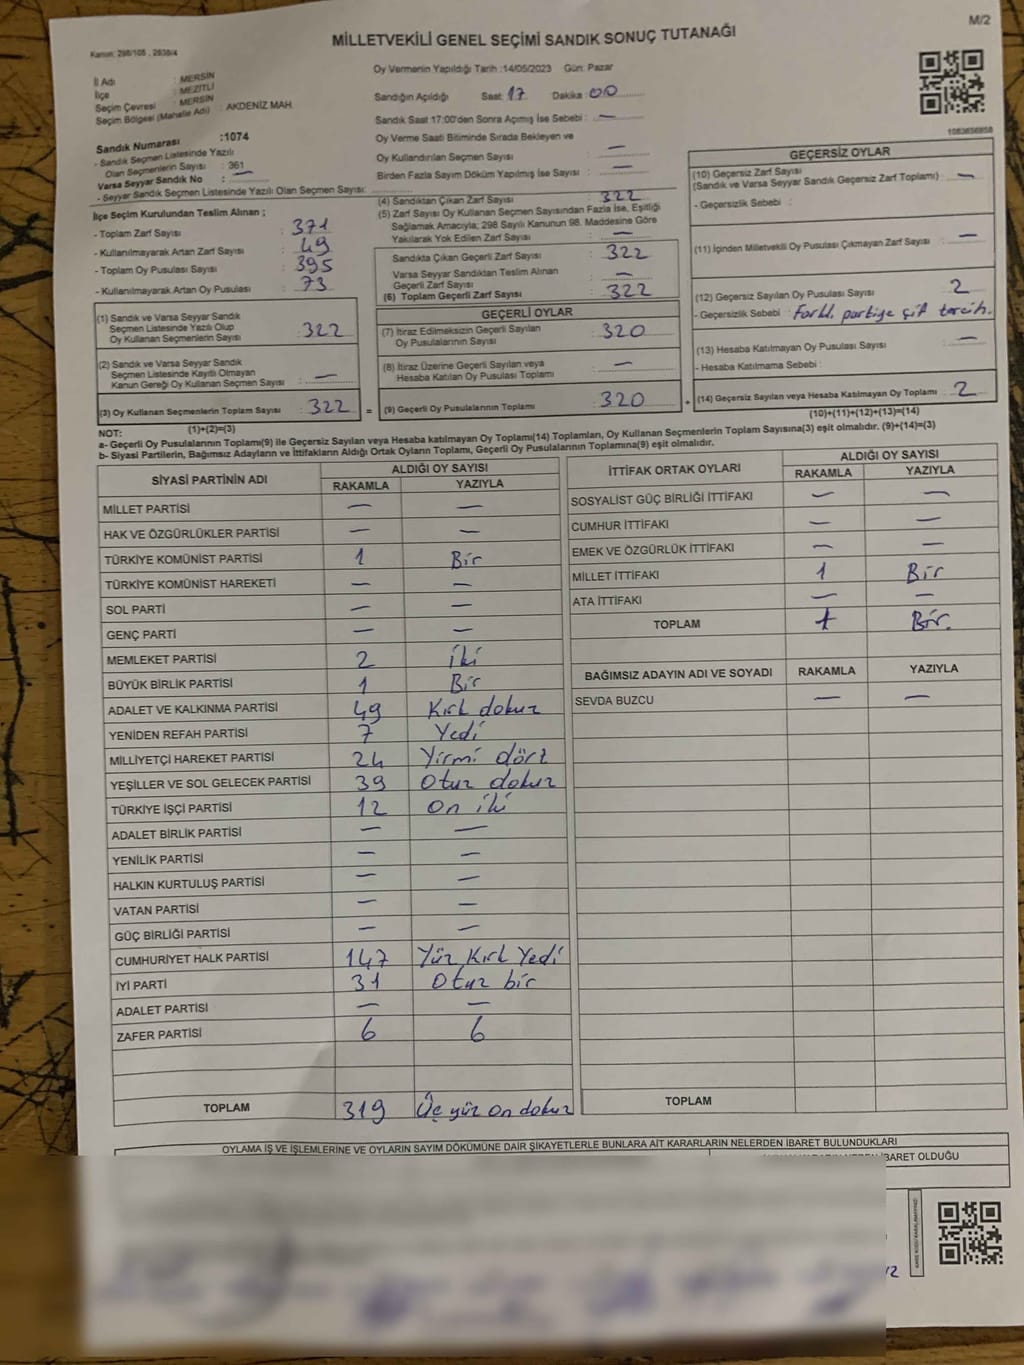 M/2
MİLLETVEKİLİ GENEL SEÇİMİ SANDIK SONUÇ TUTANAĞI
Kanun: 298/105 , 2839/4
İl Adı : MERSİN
İlçe : MEZİTLİ
Seçim Çevresi : MERSİN
Seçim Bölgesi (Mahalle Adı) : AKDENİZ MAH.
Oy Vermenin Yapıldığı Tarih :14/05/2023 Gün: Pazar
Sandığın Açıldığı Saat: 17 Dakika : 00
Sandık Saat 17:00'den Sonra Açımış İse Sebebi : —
Oy Verme Saati Bitiminde Sırada Bekleyen ve
Oy Kullandırılan Seçmen Sayısı : —
Birden Fazla Sayım Döküm Yapılmış İse Sayısı : —
1083656858
Sandık Numarası :1074
- Sandık Seçmen Listesinde Yazılı
Olan Seçmenlerin Sayısı : 361
Varsa Seyyar Sandık No : —
- Seyyar Sandık Seçmen Listesinde Yazılı Olan Seçmen Sayısı:
İlçe Seçim Kurulundan Teslim Alınan ;
- Toplam Zarf Sayısı : 371
- Kullanılmayarak Artan Zarf Sayısı : 49
- Toplam Oy Pusulası Sayısı : 395
- Kullanılmayarak Artan Oy Pusulası : 73
(1) Sandık ve Varsa Seyyar Sandık
Seçmen Listesinde Yazılı Olup
Oy Kullanan Seçmenlerin Sayısı : 322
(2) Sandık ve Varsa Seyyar Sandık
Seçmen Listesinde Kayıtlı Olmayan
Kanun Gereği Oy Kullanan Seçmen Sayısı : —
(3) Oy Kullanan Seçmenlerin Toplam Sayısı : 322 =
(1)+(2)=(3)
(4) Sandıktan Çıkan Zarf Sayısı : 322
(5) Zarf Sayısı Oy Kullanan Seçmen Sayısından Fazla İse, Eşitliği
Sağlamak Amacıyla; 298 Sayılı Kanunun 98. Maddesine Göre
Yakılarak Yok Edilen Zarf Sayısı : —
Sandıkta Çıkan Geçerli Zarf Sayısı : 322
Varsa Seyyar Sandıktan Teslim Alınan
Geçerli Zarf Sayısı : —
(6) Toplam Geçerli Zarf Sayısı : 322
GEÇERLİ OYLAR
(7) İtiraz Edilmeksizin Geçerli Sayılan
Oy Pusulalarının Sayısı : 320
(8) İtiraz Üzerine Geçerli Sayılan veya
Hesaba Katılan Oy Pusulası Toplamı : —
(9) Geçerli Oy Pusulalarının Toplamı : 320 +
GEÇERSİZ OYLAR
(10) Geçersiz Zarf Sayısı
(Sandık ve Varsa Seyyar Sandık Geçersiz Zarf Toplamı) : —
- Geçersizlik Sebebi :
(11) İçinden Milletvekili Oy Pusulası Çıkmayan Zarf Sayısı : —
(12) Geçersiz Sayılan Oy Pusulası Sayısı : 2
- Geçersizlik Sebebi : farklı partiye çift tercih.
(13) Hesaba Katılmayan Oy Pusulası Sayısı : —
- Hesaba Katılmama Sebebi :
(14) Geçersiz Sayılan veya Hesaba Katılmayan Oy Toplamı : 2
(10)+(11)+(12)+(13)=(14)
NOT:
a- Geçerli Oy Pusulalarının Toplamı(9) ile Geçersiz Sayılan veya Hesaba katılmayan Oy Toplamı(14) Toplamları, Oy Kullanan Seçmenlerin Toplam Sayısına(3) eşit olmalıdır. (9)+(14)=(3)
b- Siyasi Partilerin, Bağımsız Adayların ve İttifakların Aldığı Ortak Oyların Toplamı, Geçerli Oy Pusulalarının Toplamına(9) eşit olmalıdır.
SİYASİ PARTİNİN ADI ALDIĞI OY SAYISI
RAKAMLA YAZIYLA
MİLLET PARTİSİ — —
HAK VE ÖZGÜRLÜKLER PARTİSİ — —
TÜRKİYE KOMÜNİST PARTİSİ 1 Bir
TÜRKİYE KOMÜNİST HAREKETİ — —
SOL PARTİ — —
GENÇ PARTİ — —
MEMLEKET PARTİSİ 2 iki
BÜYÜK BİRLİK PARTİSİ 1 Bir
ADALET VE KALKINMA PARTİSİ 49 Kırk dokuz
YENİDEN REFAH PARTİSİ 7 Yedi
MİLLİYETÇİ HAREKET PARTİSİ 24 Yirmi dört
YEŞİLLER VE SOL GELECEK PARTİSİ 39 Otuz dokuz
TÜRKİYE İŞÇİ PARTİSİ 12 On iki
ADALET BİRLİK PARTİSİ — —
YENİLİK PARTİSİ — —
HALKIN KURTULUŞ PARTİSİ — —
VATAN PARTİSİ — —
GÜÇ BİRLİĞİ PARTİSİ — —
CUMHURİYET HALK PARTİSİ 147 Yüz Kırk Yedi
İYİ PARTİ 31 Otuz bir
ADALET PARTİSİ — —
ZAFER PARTİSİ 6 6
TOPLAM 319 Üç yüz on dokuz
İTTİFAK ORTAK OYLARI ALDIĞI OY SAYISI
RAKAMLA YAZIYLA
SOSYALİST GÜÇ BİRLİĞİ İTTİFAKI — —
CUMHUR İTTİFAKI — —
EMEK VE ÖZGÜRLÜK İTTİFAKI — —
MİLLET İTTİFAKI 1 Bir
ATA İTTİFAKI — —
TOPLAM 1 Bir.
BAĞIMSIZ ADAYIN ADI VE SOYADI RAKAMLA YAZIYLA
SEVDA BUZCU — —
TOPLAM
OYLAMA İŞ VE İŞLEMLERİNE VE OYLARIN SAYIM DÖKÜMÜNE DAİR ŞİKAYETLERLE BUNLARA AİT KARARLARIN NELERDEN İBARET BULUNDUKLARI
İBARET OLDUĞU